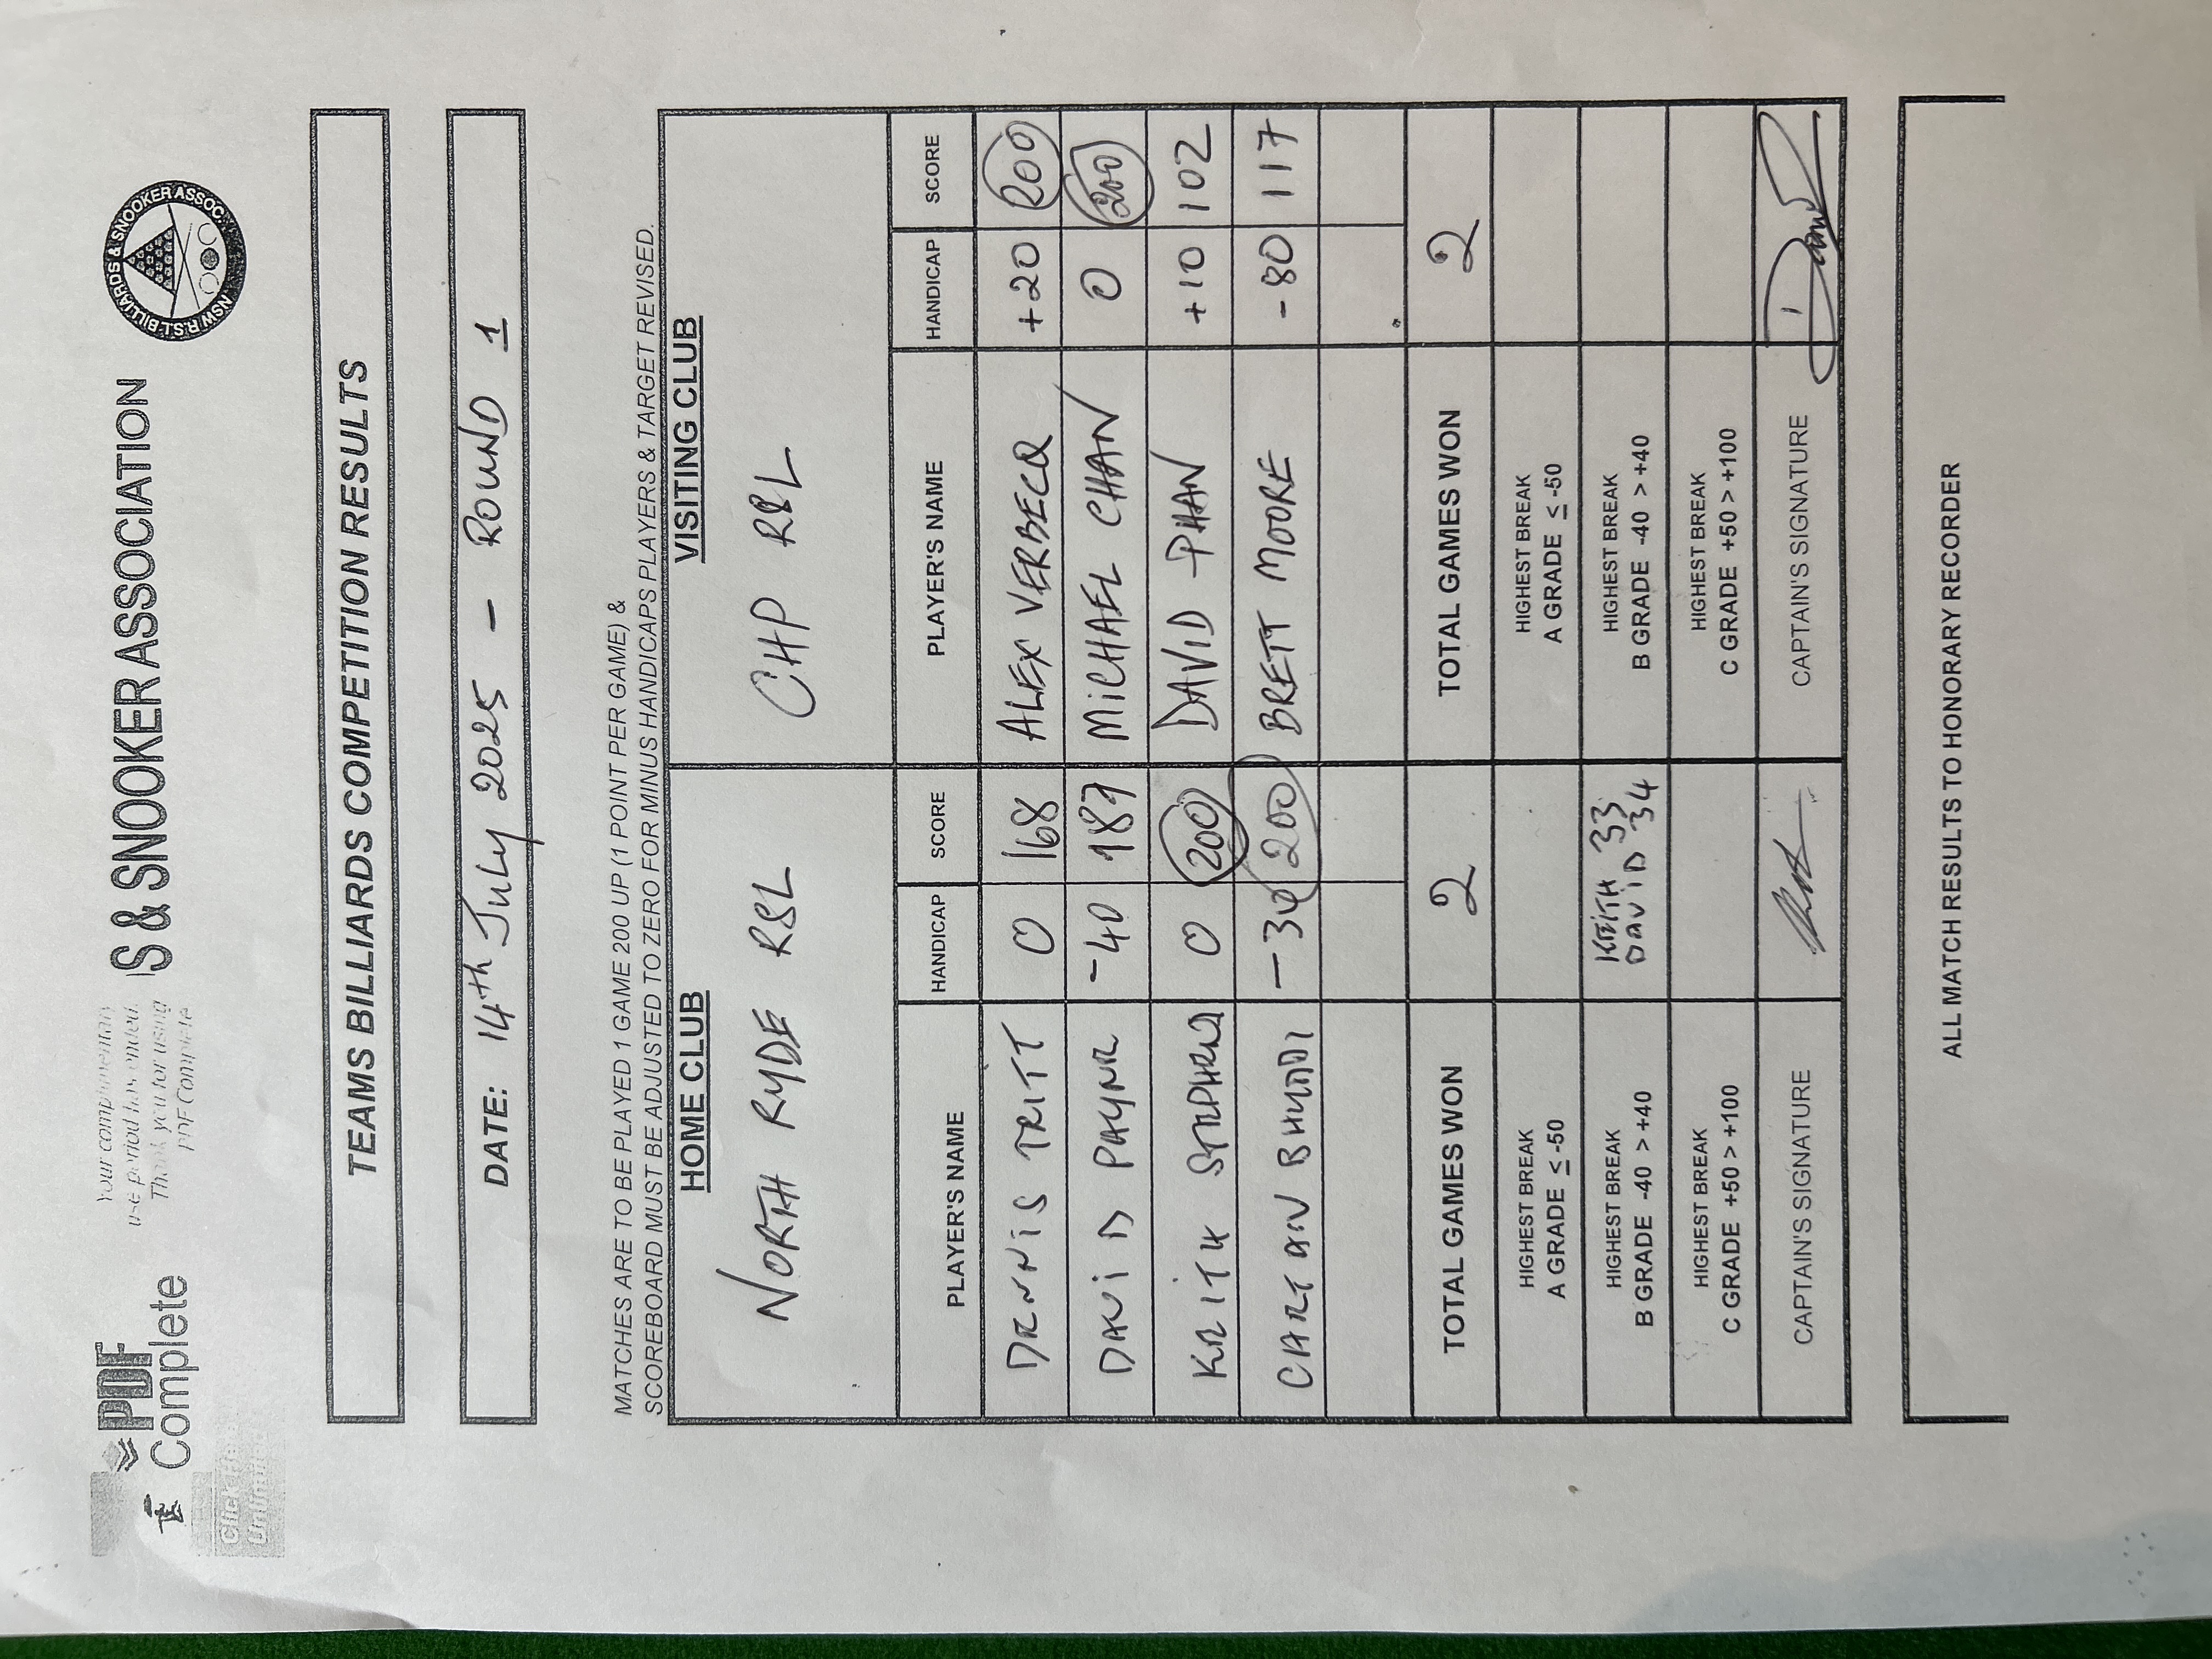 PDF
Complete
Your complimentary
use period has ended.
Thank you for using
PDF Complete.
S & SNOOKER ASSOCIATION
NSW R.S.L BILLIARDS & SNOOKER ASSOC.
TEAMS BILLIARDS COMPETITION RESULTS
DATE: 14th July 2025 - ROUND 1
MATCHES ARE TO BE PLAYED 1 GAME 200 UP (1 POINT PER GAME) &
SCOREBOARD MUST BE ADJUSTED TO ZERO FOR MINUS HANDICAPS PLAYERS & TARGET REVISED.
HOME CLUB VISITING CLUB
NORTH RYDE RSL CHP RSL
PLAYER'S NAME HANDICAP SCORE PLAYER'S NAME HANDICAP SCORE
DENNIS TRITT 0 168 ALEX VERBECQ +20 200
DAVID PAYNE -40 187 MICHAEL CHAN 0 200
KEITH 0 200 DAVID PHAN +10 102
200 BRETT MOORE -80 117
TOTAL GAMES WON 2 TOTAL GAMES WON 2
HIGHEST BREAK HIGHEST BREAK
A GRADE ≤ -50 A GRADE ≤ -50
HIGHEST BREAK KEITH 33 HIGHEST BREAK
B GRADE -40 > +40 DAVID 34 B GRADE -40 > +40
HIGHEST BREAK HIGHEST BREAK
C GRADE +50 > +100 C GRADE +50 > +100
CAPTAIN'S SIGNATURE CAPTAIN'S SIGNATURE
ALL MATCH RESULTS TO HONORARY RECORDER